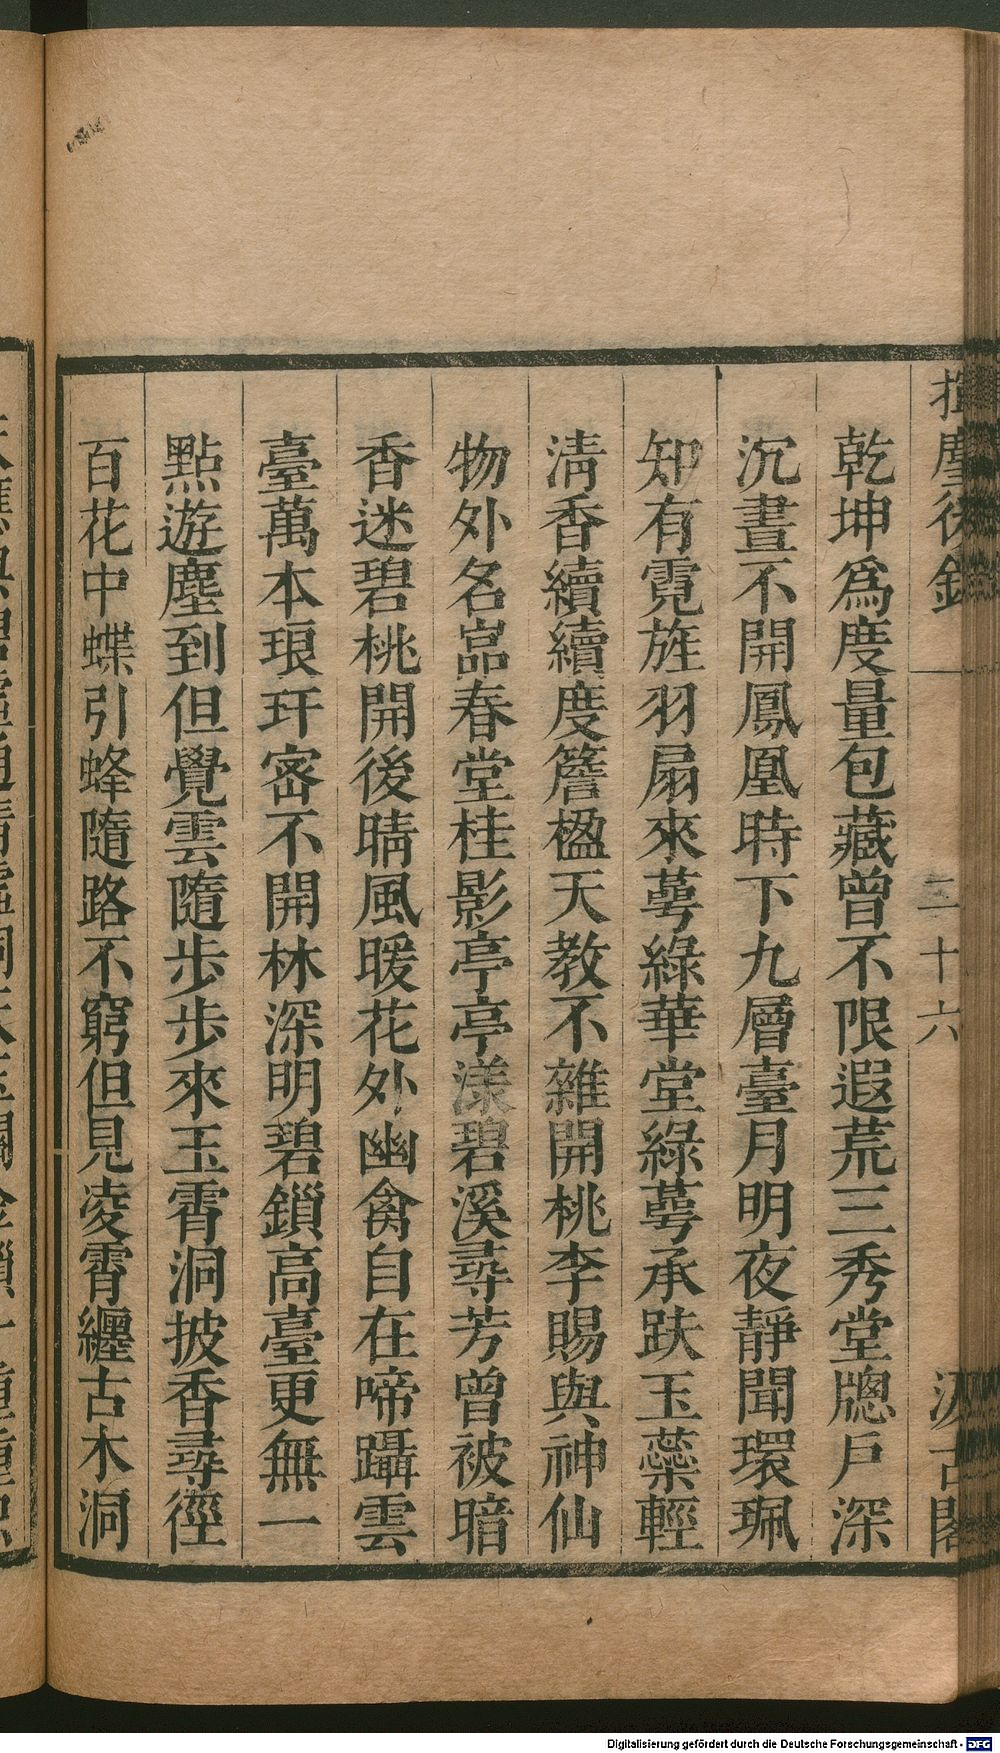 揮麈後錄
二十六
汲古閣
乾坤爲度量包藏曾不限遐荒三秀堂牕戶深
沉晝不開鳳凰時下九層臺月明夜靜聞環珮
知有霓旌羽扇來萼綠華堂綠萼承趺玉蘂輕
淸香續續度簷楹天教不雜開桃李賜與神仙
物外名嵓春堂桂影亭亭漾碧溪尋芳曾被暗
香迷碧桃開後晴風暖花外幽禽自在啼躡雲
臺萬本琅玕宻不開林深明碧鎻高臺更無一
點遊塵到但覺雲隨步步來玉霄洞披香尋徑
百花中蝶引蜂隨路不窮但見凌霄纏古木洞
Digitalisierung gefördert durch die Deutsche Forschungsgemeinschaft - DFG